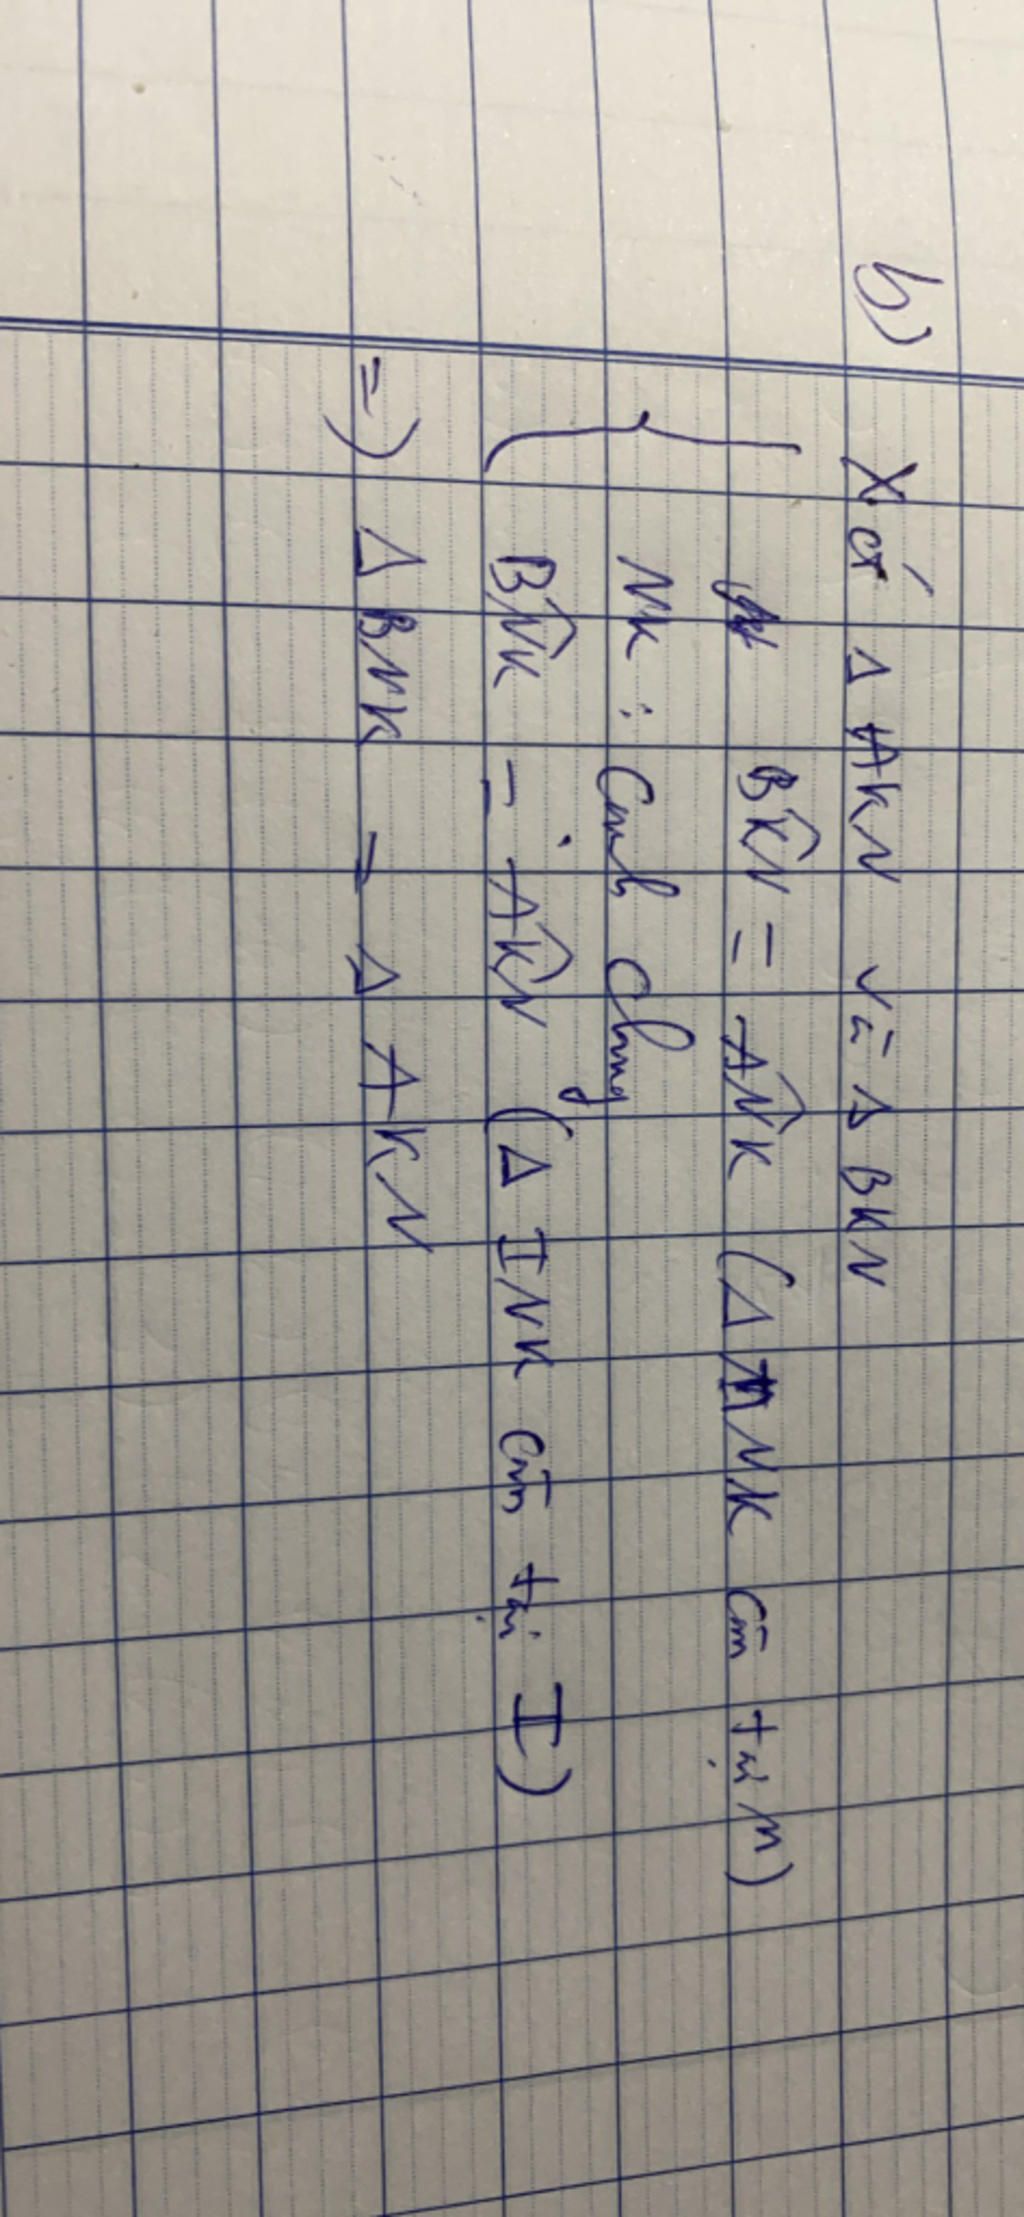 b) Xét Δ AKN và Δ BKN
BK̂N = AN̂K (Δ MNK cân tại M)
NK : Cạnh chung
BN̂K = AK̂N (Δ INK cân tại I)
=) Δ BNK = Δ AKN